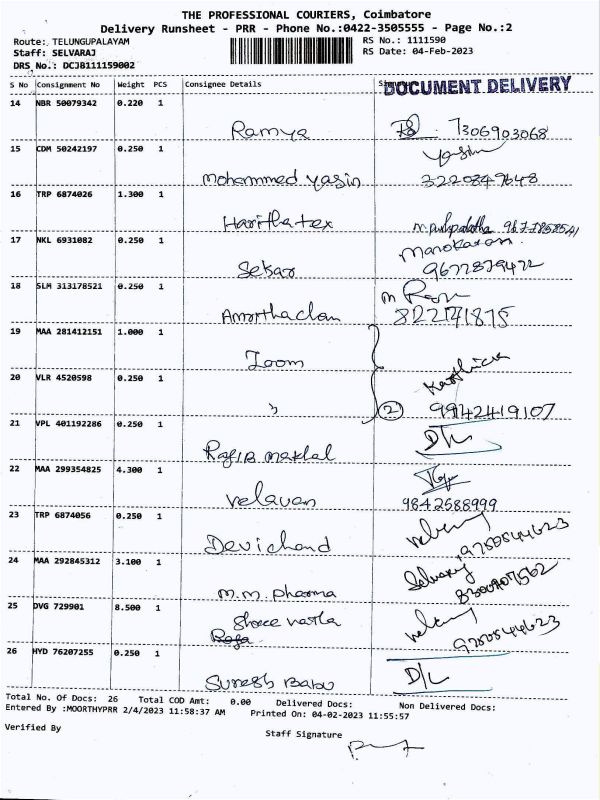 THE PROFESSIONAL COURIERS, Coimbatore
Delivery Runsheet - PRR - Phone No.:0422-3505555 - Page No.:2
Route: TELUNGUPALAYAM RS No.: 1111590
Staff: SELVARAJ RS Date: 04-Feb-2023
DRS No.: DCJB111159002
S No Consignment No Weight PCS Consignee Details DOCUMENT DELIVERY
14 NBR 50079342 0.220 1
Ramya 7306903068
15 CDM 50242197 0.250 1 yasin
Mohammed yasin
16 TRP 6874026 1.300 1
Haritha tex
17 NKL 6931082 0.250 1 Manokaran
Sekar 9677879472
18 SLM 313178521 0.250 1
82271875
19 MAA 281412151 1.000 1
Zoom
20 VLR 4520598 0.250 1 Karthick
" 2 9942419107
21 VPL 401192286 0.250 1
D/L
22 MAA 299354825 4.300 1
Velavan 9842588999
23 TRP 6874056 0.250 1
Devichand 9750544623
24 MAA 292845312 3.100 1
M.M. Pharma
25 DVG 729901 8.500 1
Shree
9750544623
26 HYD 76207255 0.250 1
Suresh Babu D/L
Total No. Of Docs: 26 Total COD Amt: 0.00 Delivered Docs: Non Delivered Docs:
Entered By :MOORTHYPRR 2/4/2023 11:58:37 AM Printed On: 04-02-2023 11:55:57
Verified By Staff Signature